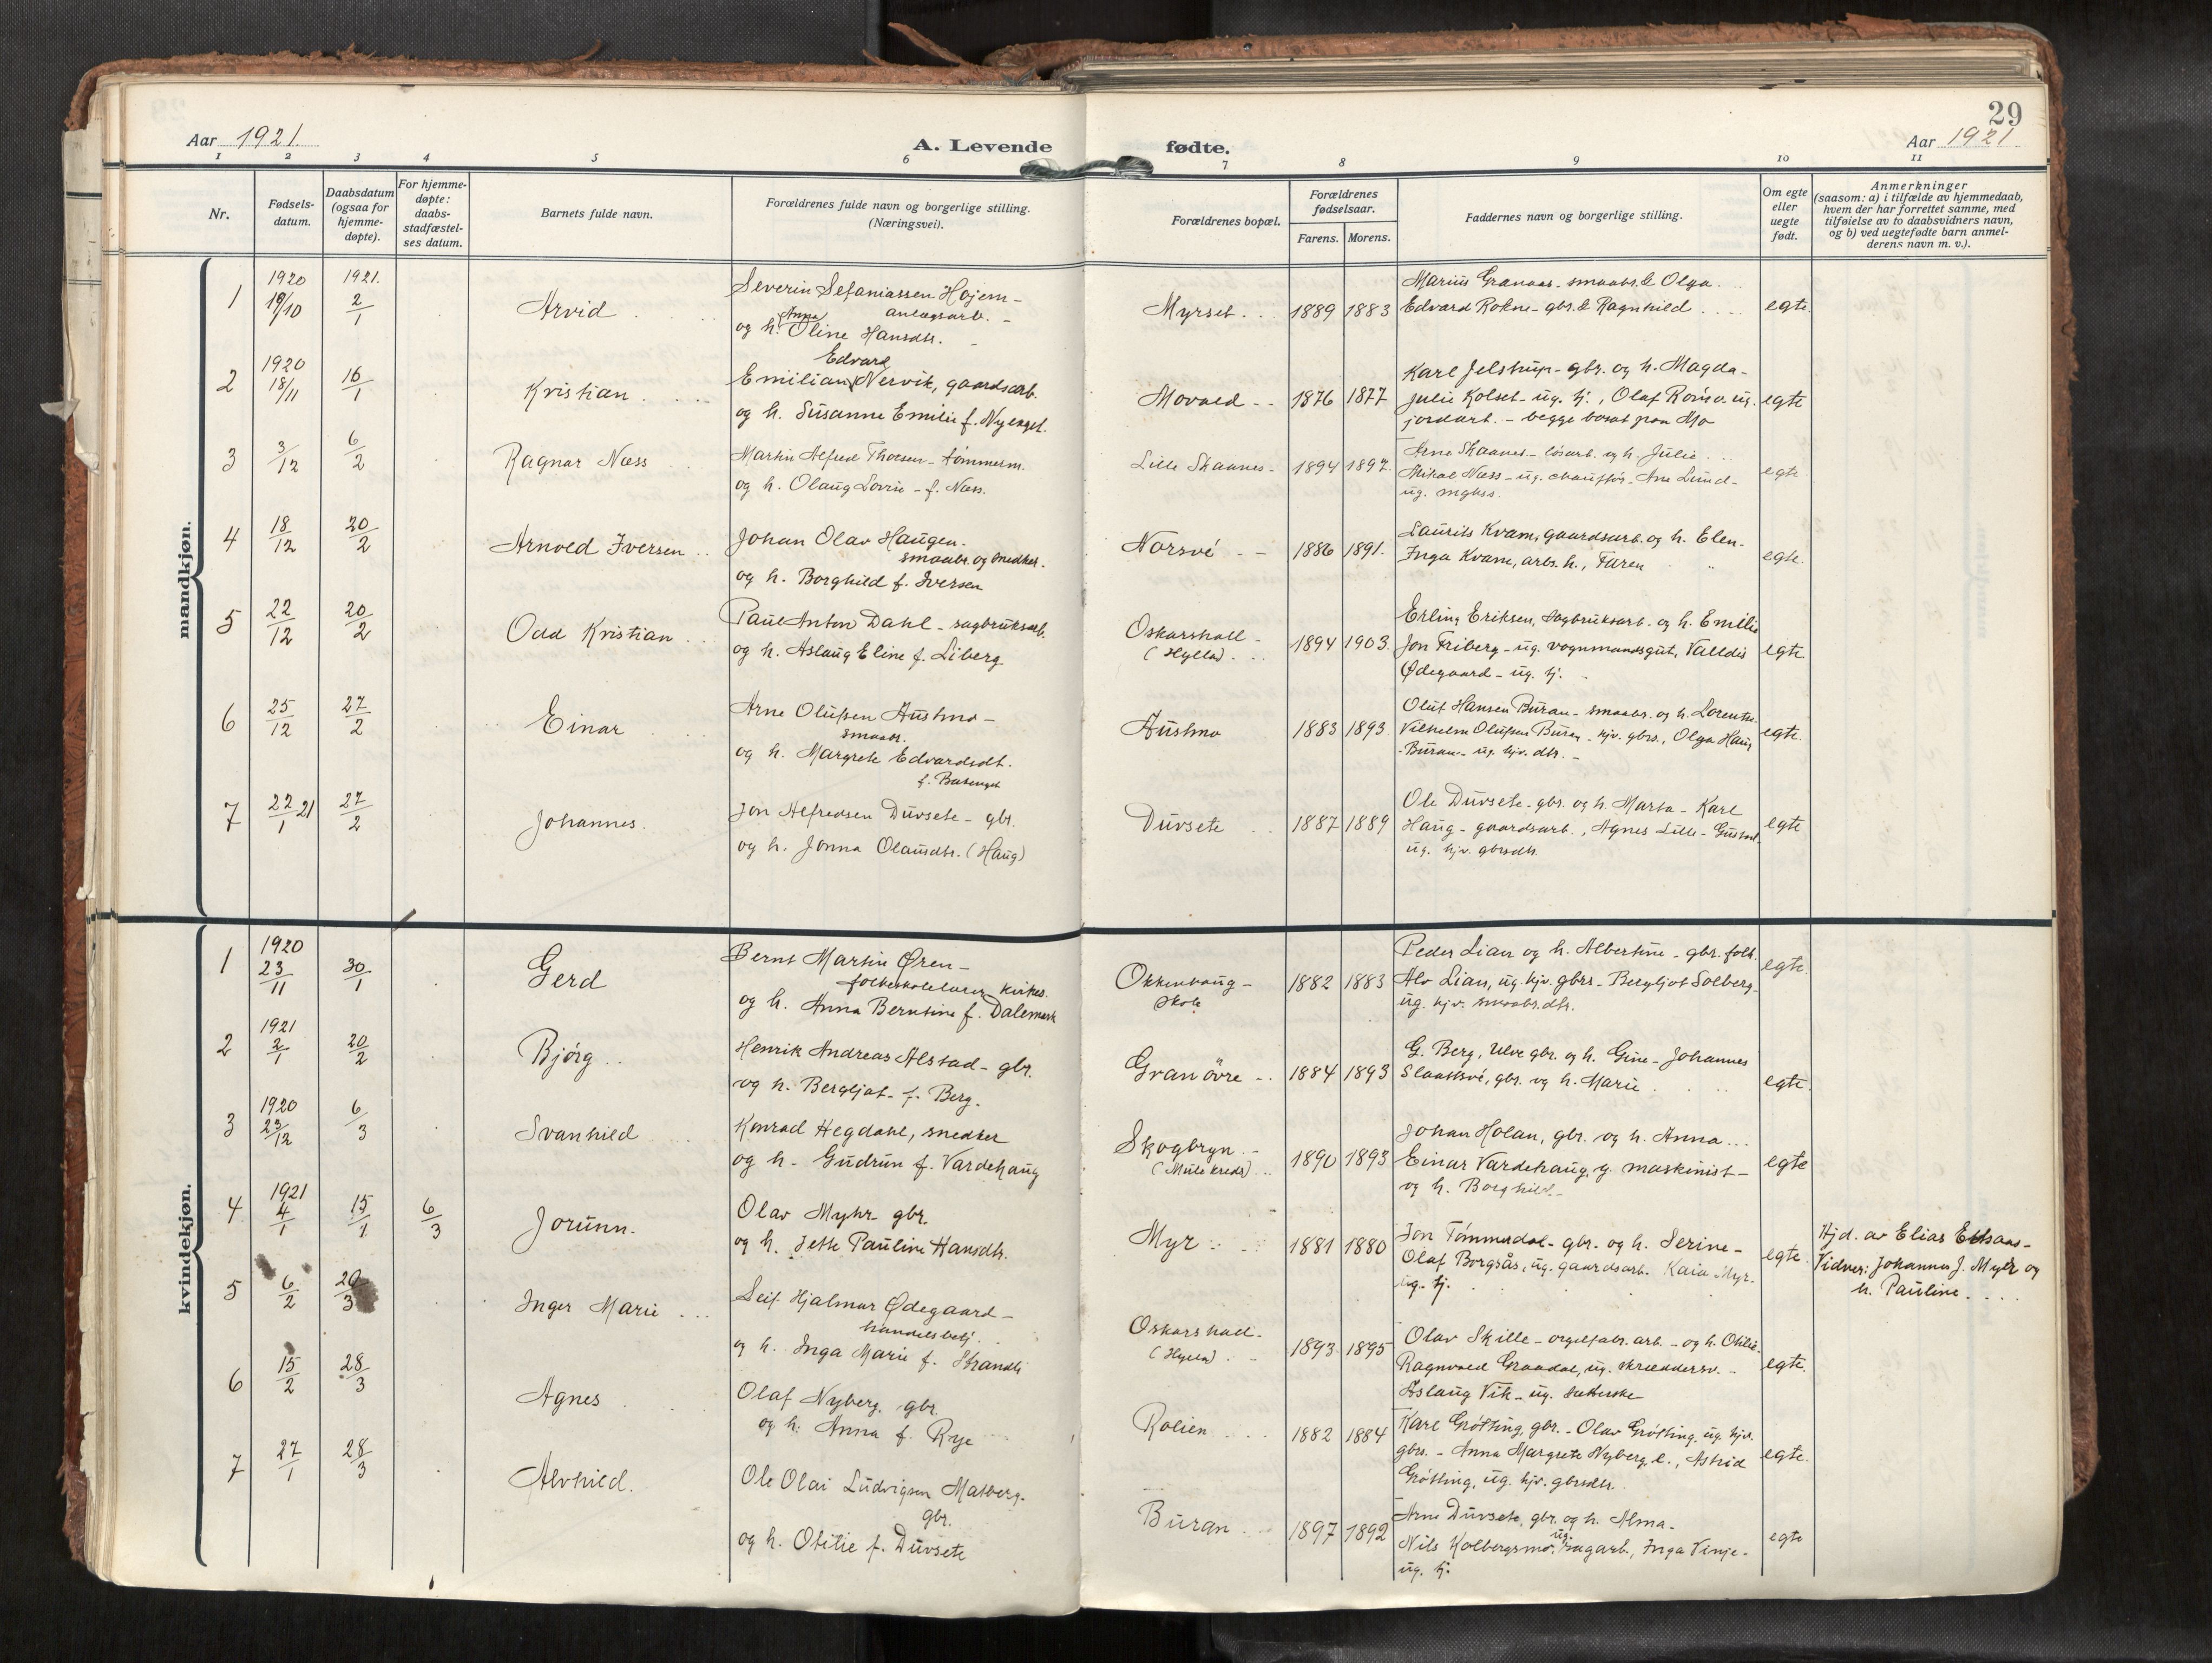 29
Aar 1921.
A. Levende fødte.
Aar 1921
1 2 3 4 5 6 7 8 9 10 11
Nr.
Fødsels-
datum.
Daabsdatum
(ogsaa for
hjemme-
døpte).
For hjemme-
døpte:
daabs-
stadfæstel-
ses datum.
Barnets fulde navn.
Forældrenes fulde navn og borgerlige stilling.
(Næringsvei).
Forældrenes bopæl.
Forældrenes
fødselsaar.
Farens. Morens.
Faddernes navn og borgerlige stilling.
Om egte
eller
uegte
født.
Anmerkninger
(saasom: a) i tilfælde av hjemmedaab,
hvem der har forrettet samme, med
tilføielse av to daabsvidners navn,
og b) ved uegtefødte barn anmel-
derens navn m. v.).
mandkjøn.
1
1920
19/10
1921.
2/1
Arvid
Severin Sefaniassen Hojem -
anlægsarb. -
og h. Anna Oline Hansdtr.
Myrset
1889 1883
Marius Granaas - smaabr. & Olga
Edvard Rokne - gbr. & Ragnhild
egte.
2
1920
18/11
16/1
Kristian
Emilian Edvard Nervik, gaardsarb.
og h. Susanne Emilie f. Nyenget.
Movald
1876 1877
Karl Jelstrup - gbr. og h. Magda -
Julie Kolset - ug. tj., Olaf - ug.
jordarb. - begge bosat paa Mo
egte
3
3/12
6/2
Ragnar Næss
Martin Alfred Thorsen - tømmerm.
og h. Olaug Lovise - f. Næss.
Lille Skaanes -
1894 1897.
Arne Skaanes - løsarb. og h. Julie
Mikal Næss - ug. chauffør - Ane Lund -
ug.
egte
4
18/12
20/2
Arnold Iversen
Johan Olav Haugen.
smaabr. og snedker.
og h. Borghild f. Iversen
Norsve
1886 1891.
Laurits Kvam, gaardsarb. og h. Elen -
Inga Kvam, arb. h., Faren
egte.
5
22/12
20/2
Odd Kristian
Paul Anton Dahl - sagbruksarb.
og h. Aslaug Eline f. Liberg
Oskarshall -
(Hylla)
1894 1903.
Erling Eriksen, sagbruksarb. og h. Emilie
Jon Friberg - ug. vognmandsgut, Valldis
Ødegaard - ug. tj. -
egte
6
25/12
27/2
Einar
Arne Olufsen Austmo -
smaabr.
og h. Margrete Edvardsdt.
Austmo
1883 1893.
Oluf Hansen Buran - smaabr. og h. Lorentse.
Vilhelm Olufsen Buran - hjv. gbrs., Olga Haug
Buran - ug. hjv. dtr. -
egte.
7
22/1 21
27/2
Johannes.
Jon Alfredsen Duvsete - gbr.
og h. Jonna Olausdtr. (Haug)
Duvsete
1887 1889
Ole Duvsete - gbr. og h. Marta - Karl
Haug - gaardsarb., Agnes Lille -
ug. hjv. gbrsdtr.
egte
kvindekjøn.
1
1920
23/11
30/1
Gerd
Bernt Martin Øren -
folkeskolelærer, kirkes.
og h. Anna Berntine f. Dalemark
Okkenhaug -
skole
1882 1883
Peder Lian og h. Albertine - gbr. folk.
Alv Lian, ug. hjv. gbrs. - Bergljot Solberg -
ug. hjv. smaabr.dtr.
egte.
2
1921
2/1
20/2
Bjørg
Henrik Andreas Alstad - gbr.
og h. Bergljot - f. Berg.
Gran øvre
1884 1893
G. Berg, Ulve gbr. og h. Gine - Johannes
gbr. og h. Marie
egte.
3
1920
23/12
6/3
Svanhild
Konrad Hegdahl, snedker
og h. Gudrun f. Vardehaug
Skogbryn
(Mule kreds)
1890 1893
Johan Holan, gbr. og h. Anna
Einar Vardehaug, g. maskinist -
og h. Borghild. -
egte
4
1921
4/1
15/1
6/3
Jorunn.
Olav Myhr - gbr.
og h. Jette Pauline Hansdtr.
Myr
1881 1880
Jon Tømmerdal - gbr. og h. Serine -
Olaf Borgsås, ug. gaardsarb. Kaia Myr.
ug. tj.
egte.
Hjd. av Elias Eklsaas -
Vidner: Johannes J. Myhr og
h. Pauline
5
6/2
20/3
Inger Marie
Leif Hjalmar Ødegaard -
handelsbetj.
og h. Inga Marie f. Strandli
Oskarshall.
(Hylla)
1893 1895
Olav Skille - orgelfabr. arb. - og h. Otilie.
Ragnvald Graadal, ug. skræddersv. -
Aslaug Vik - ug.
egte.
6
15/2
28/3
Agnes
Olaf Nyberg, gbr.
og h. Anna f. Rye
Rolien
1882 1884
Karl Grøtting, gbr. - Olav Grøtting, ug. hjv.
gbrs. - Anna Margrete Nyberg, e., Astrid
Grøtting, ug. hjv. gbrsdtr.
egte.
7
27/1
28/3
Alvhild.
Ole Olai Ludvigsen Matberg.
gbr.
og h. Otilie f. Duvsete
Buran
1897 1892
Arne Duvsete, gbr. og h. Alma -
Nils Kolbergsmo, ug. sagarb., Inga Vinje -
ug. tj.
egte